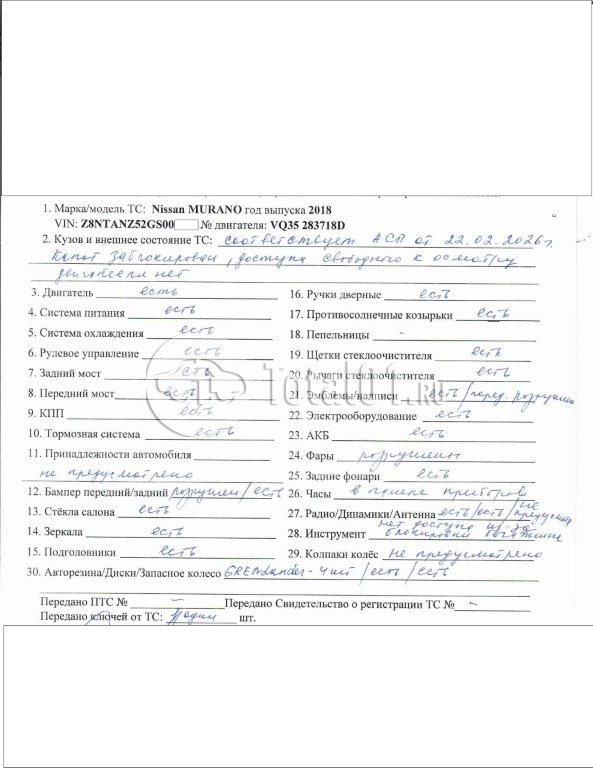 1. Марка/модель ТС: Nissan MURANO год выпуска 2018
VIN: Z8NTANZ52GS00 № двигателя: VQ35 283718D
2. Кузов и внешнее состояние ТС: соответствует АСП от 22.02.2026г.
Капот заблокирован, доступа свободного к осмотру
двигателя нет
3. Двигатель есть
4. Система питания есть
5. Система охлаждения есть
6. Рулевое управление есть
7. Задний мост есть
8. Передний мост есть
9. КПП есть
10. Тормозная система есть
11. Принадлежности автомобиля
не предусмотрено
12. Бампер передний/задний разрушен/есть
13. Стёкла салона есть
14. Зеркала есть
15. Подголовники есть
16. Ручки дверные есть
17. Противосолнечные козырьки есть
18. Пепельницы -
19. Щетки стеклоочистителя есть
20. Рычаги стеклоочистителя есть
21. Эмблемы/надписи есть/перед. разрушен
22. Электрооборудование есть
23. АКБ есть
24. Фары разрушены
25. Задние фонари есть
26. Часы в панели приборов
27. Радио/Динамики/Антенна есть/есть/не предусмотр
28. Инструмент нет доступа из-за
блокировки
29. Колпаки колёс не предусмотрено
30. Авторезина/Диски/Запасное колесо GRENLander-4шт/есть/есть
Передано ПТС № - Передано Свидетельство о регистрации ТС № -
Передано ключей от ТС: один шт.
Total01.RU